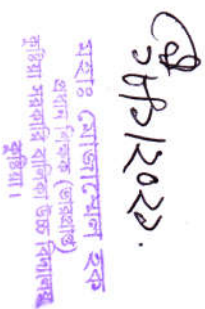 ১৮/১/২০২১.
মহাঃ মোজাম্মেল হক
প্রধান শিক্ষক (ভারপ্রাপ্ত)
কুষ্টিয়া সরকারি বালিকা উচ্চ বিদ্যালয়
কুষ্টিয়া।